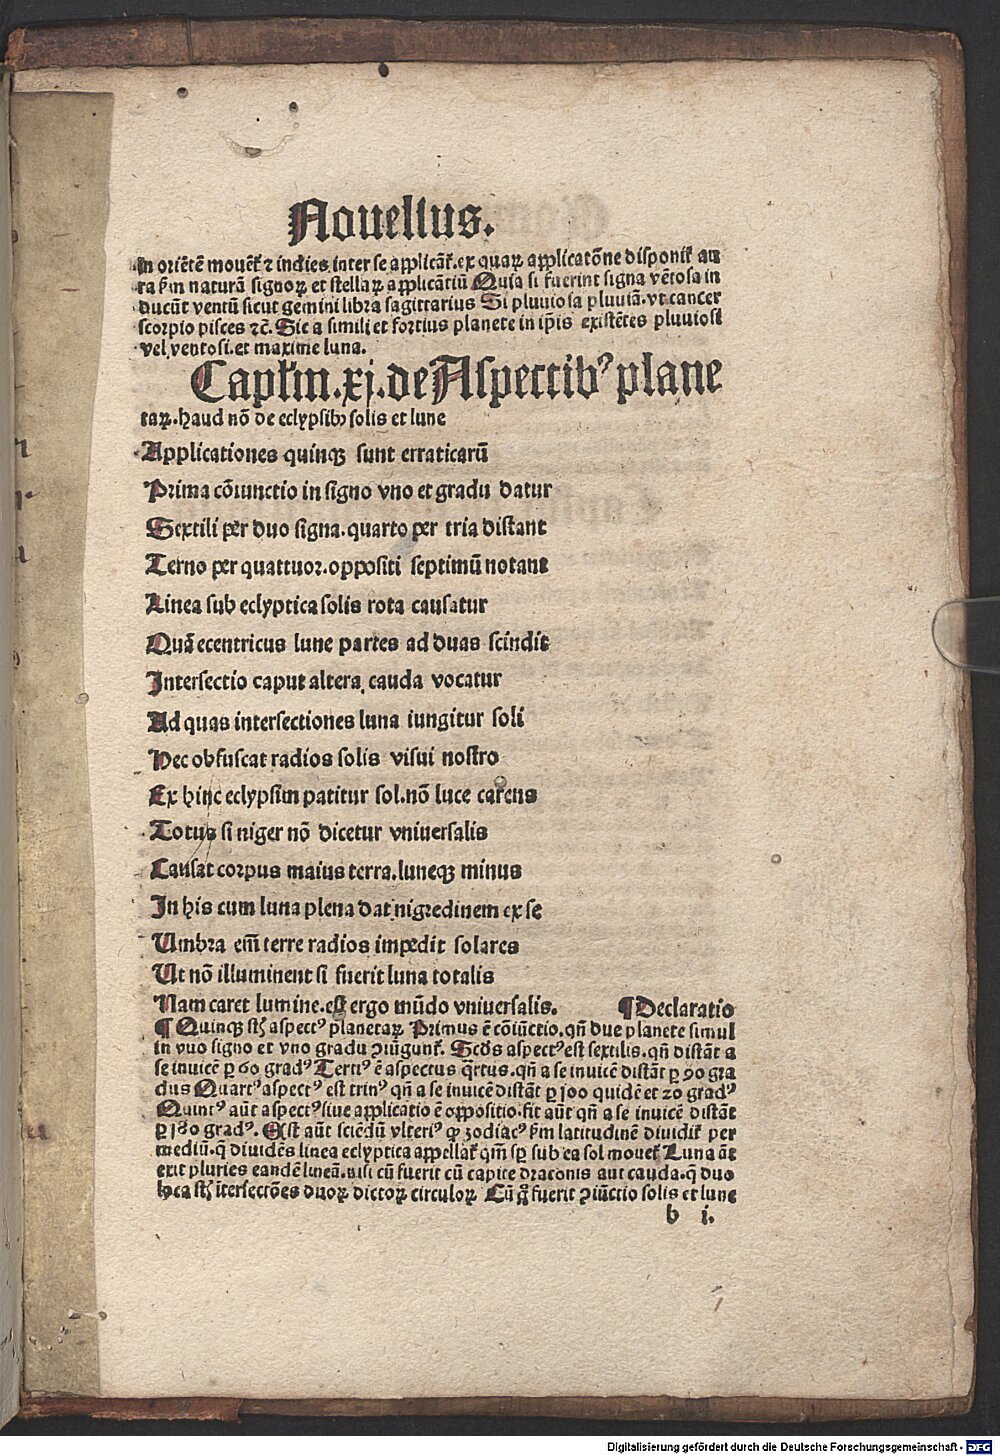 Nouellus.
In oriẽtẽ mouẽt᷑ ⁊ indies inter se applicãt᷑.ex quaꝝ applicatõne disponit᷑ au
ra ẜm naturã signoꝝ et stellaꝝ applicãtiũ Quia si fuerint signa vẽtosa in
ducũt ventũ sicut gemini libra sagittarius Si pluuiosa pluuiã.vt cancer
scorpio pisces ⁊c̃. Sic a simili et fortius planete in ip̃is existẽtes pluuiosi
vel ventosi.et maxime luna.
Capl̃m.xj.de Aspectib⁹ plane
taꝝ.haud nõ de eclypsibꝫ solis et lune
Applicationes quinqꝫ sunt erraticarũ
Prima cõiunctio in signo vno et gradu datur
Sextili per duo signa.quarto per tria distant
Terno per quattuor.oppositi septimũ notant
Linea sub eclyptica solis rota causatur
Quã ecentricus lune partes ad duas scindit
Intersectio caput altera cauda vocatur
Ad quas intersectiones luna iungitur soli
Hec obfuscat radios solis visui nostro
Ex hinc eclypsim patitur sol.nõ luce carens
Totus si niger nõ dicetur vniuersalis
Causat corpus maius terra.luneqꝫ minus
In his cum luna plena dat nigredinem ex se
Umbra em̃ terre radios impedit solares
Ut nõ illuminent si fuerit luna totalis
Nam caret lumine.est ergo mũdo vniuersalis. ¶Declaratio
¶ Quinqꝫ st̃ aspect⁹ planetaꝝ Primus ẽ cõiũctio.qñ due planete simul
in vno signo et vno gradu ꝯiũgunt᷑. Scđs aspect⁹ est sextilis.qñ distãt a
se inuicẽ ꝑ 60 grad⁹ Terti⁹ ẽ aspectus q̃rtus.qñ a se inuicẽ distãt ꝑ 90 gra
dus Quart⁹ aspect⁹ est trin⁹ qñ a se inuicẽ distãt ꝑ 100 quidẽ et 20 grad⁹
Quint⁹ aũt aspect⁹ siue applicatio ẽ oppositio.fit aũt qñ a se inuicẽ distãt
ꝑ 180 grad⁹. Est aũt sciẽdũ vlteri⁹ ꝙ zodiac⁹ ẜm latitudinẽ diuidit᷑ per
mediũ.q̃ diuidẽs linea ecliptica appellat᷑ qm̃ sꝑ sub ea sol mouet᷑ Luna aũt
exit pluries eandẽ lineã.nisi cũ fuerit cũ capite draconis aut cauda.q̃ duo
loca st̃ ĩtersectões duoꝝ dictoꝝ circuloꝝ Cũ g̃ fuerit ꝯiũctio solis et lune
b i.
Digitalisierung gefördert durch die Deutsche Forschungsgemeinschaft - DFG